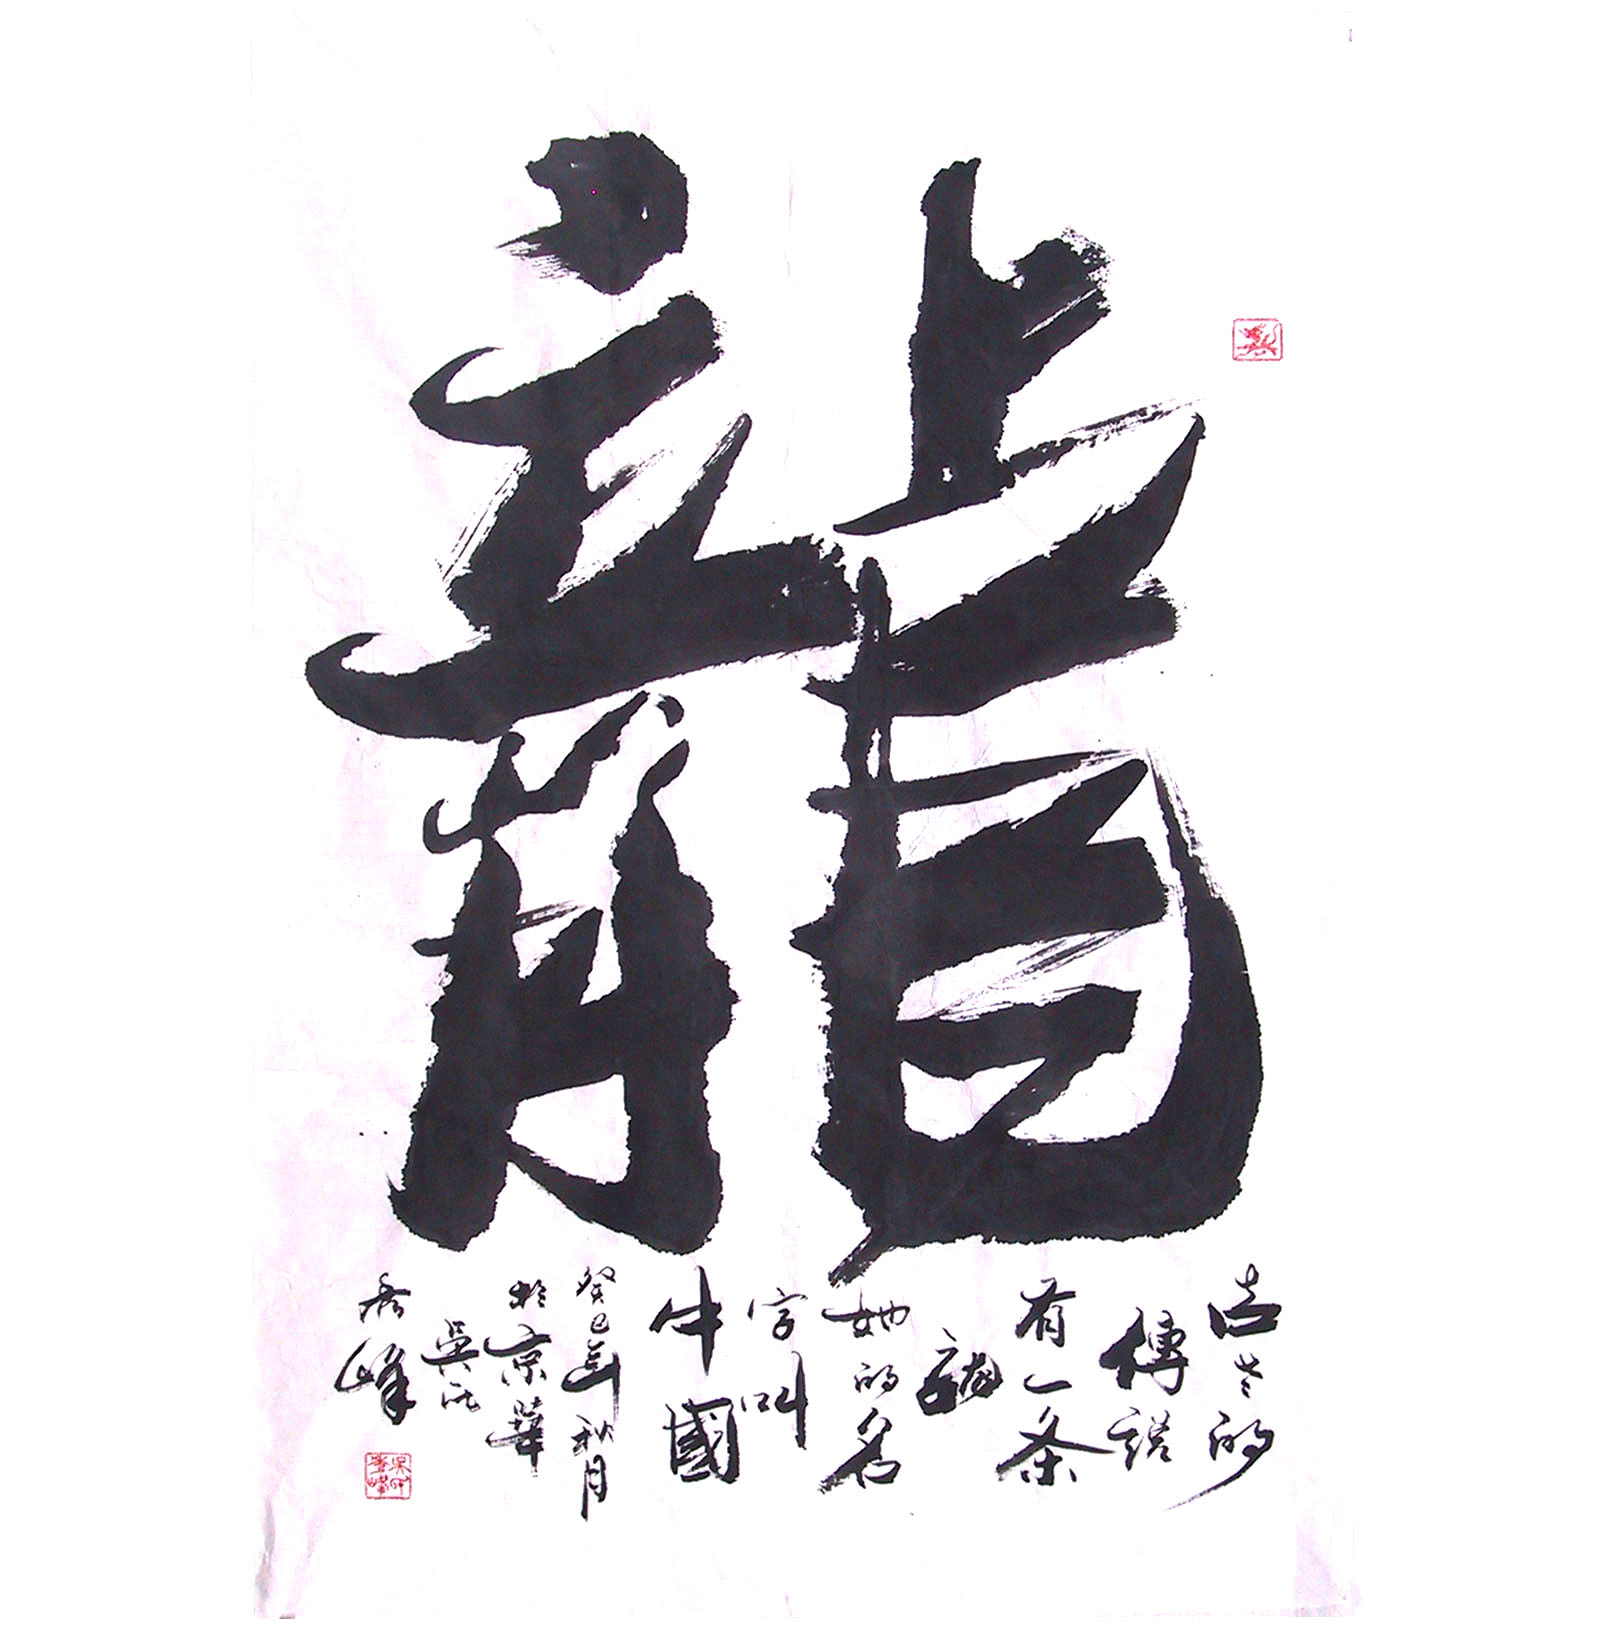 龍
古老的
傳說
有一条
龍
她的名
字叫
中國
癸巳年秋月
於京華
吳
峰